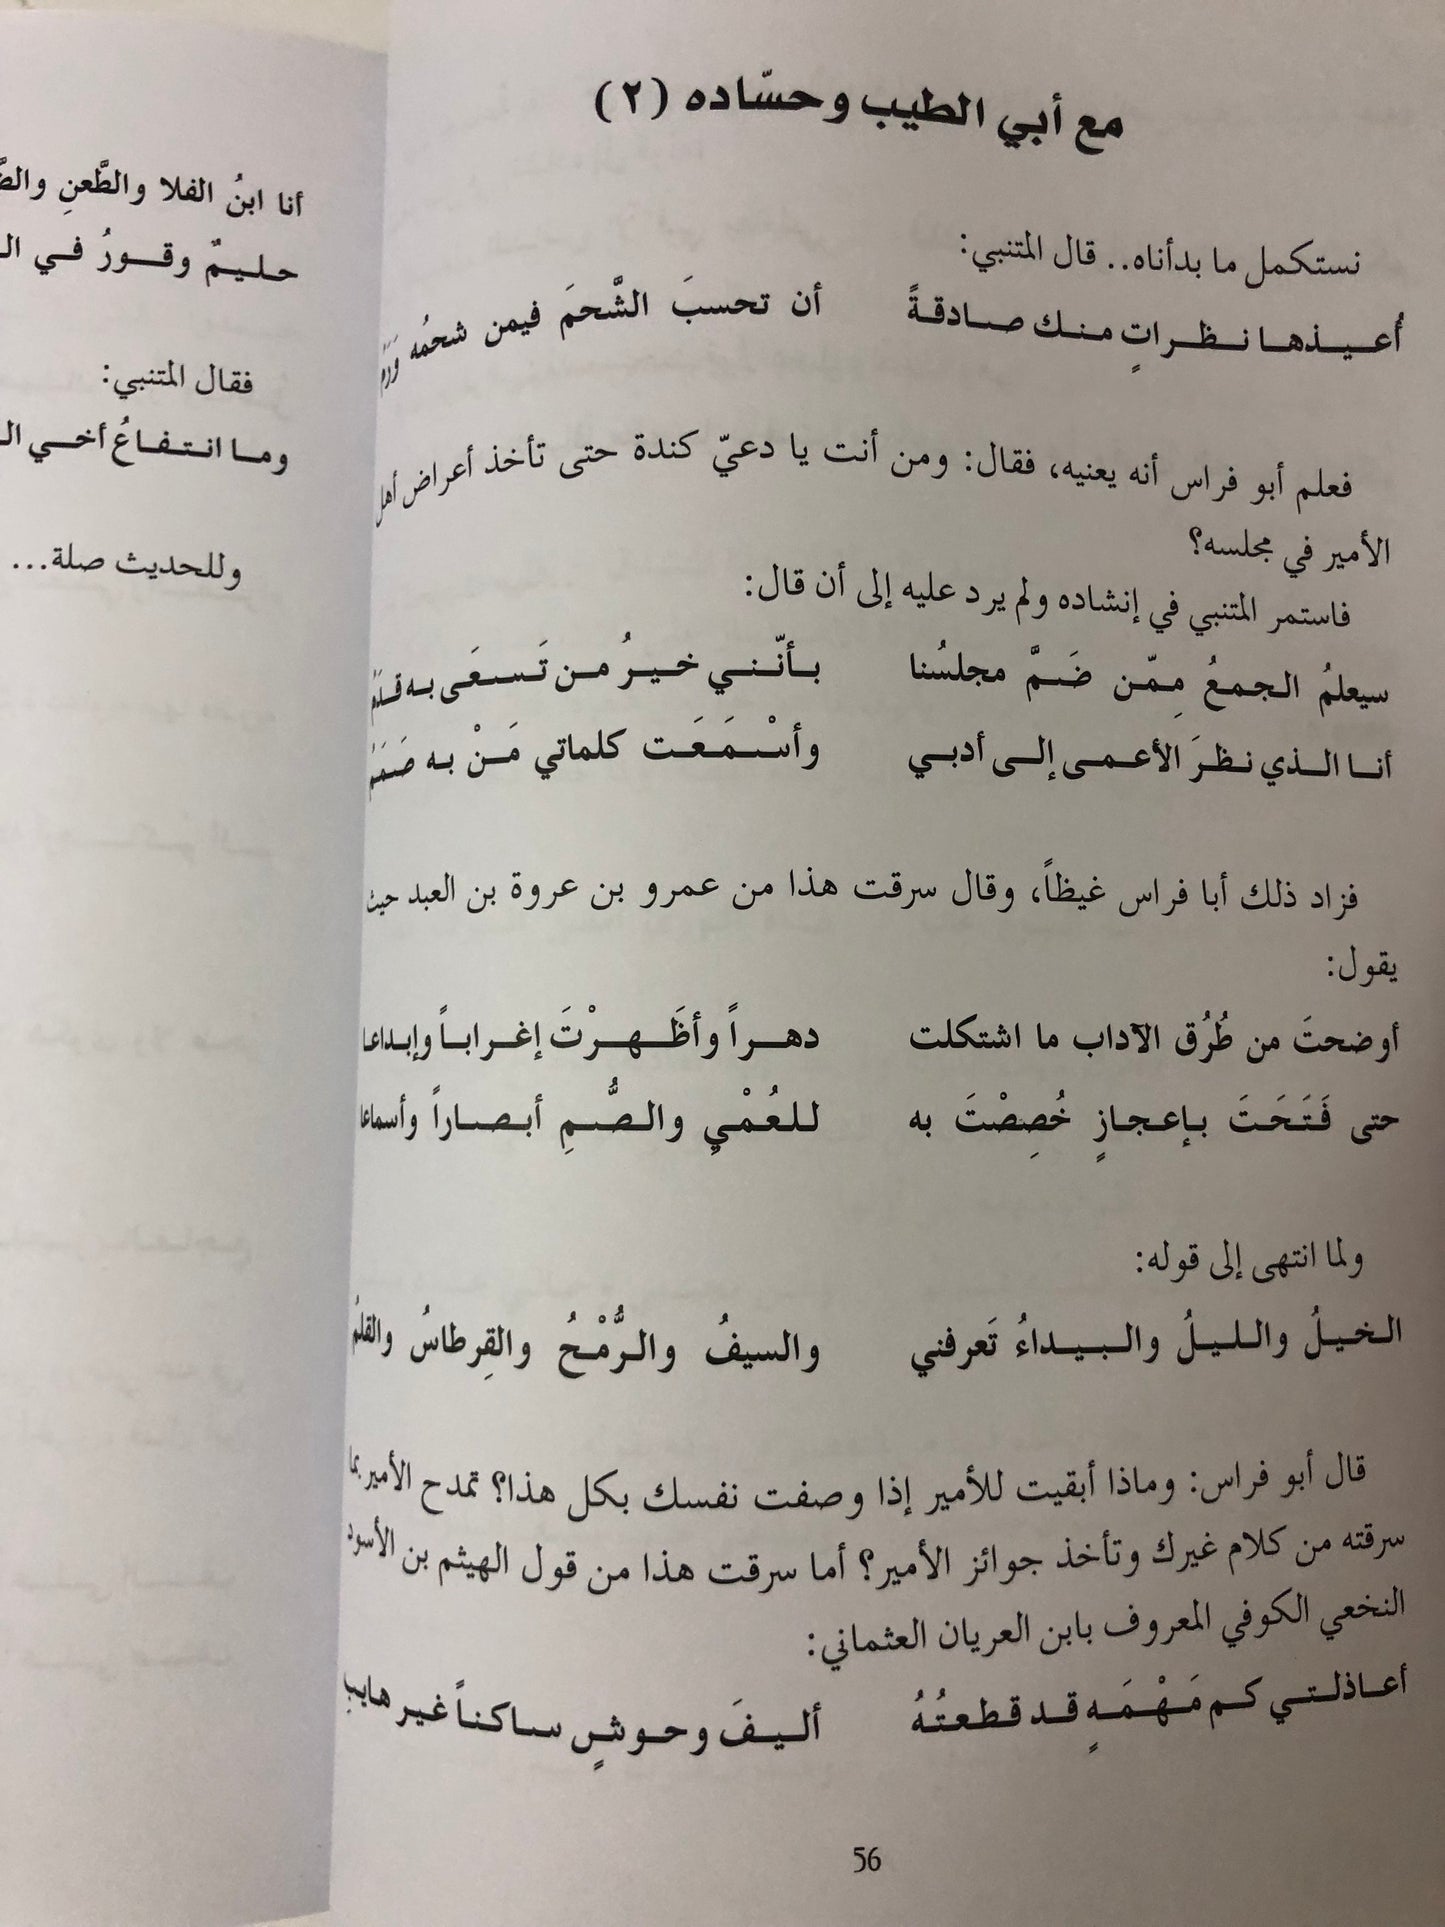 مع أبي الطيب وحسّاده (٢)
نستكمل ما بدأناه.. قال المتنبي:
أُعـيـذهـا نـظـراتٍ مـنـك صـادقـةً أن تحسبَ الشَّحمَ فيمن شحمُه وَرَمُ
فعلم أبو فراس أنه يعنيه، فقال: ومن أنت يا دعيّ كندة حتى تأخذ أعراض أهل
الأمير في مجلسه؟
فاستمر المتنبي في إنشاده ولم يرد عليه إلى أن قال:
سيعلمُ الجمعُ مِمّن ضَمَّ مجلسُنا بـأنّـنـي خـيـرُ مـن تَـسـعَـى بـه قـدَمُ
أنـا الـذي نـظـرَ الأعـمـى إلـى أدبـي وأسْـمَـعَـت كلماتي مَـنْ بـه صَـمَـمُ
فزاد ذلك أبا فراس غيظاً، وقال سرقت هذا من عمرو بن عروة بن العبد حيث
يقول:
أوضحتَ من طُرُق الآداب ما اشتكلت دهـراً وأظَـهـرْتَ إغـرابـاً وإبـداعـا
حتى فَـتَـحَـتَ بـإعـجـازٍ خُصِصْتَ به لـلـعُـمْـيِ والـصُّـمِ أبـصـاراً وأسماعا
ولما انتهى إلى قوله:
الـخـيـلُ والـلـيـلُ والـبـيـداءُ تَعرفني والسيفُ والـرُّمْـحُ والقِرطاسُ والقلمُ
قال أبو فراس: وماذا أبقيت للأمير إذا وصفت نفسك بكل هذا؟ تمدح الأمير بما
سرقته من كلام غيرك وتأخذ جوائز الأمير؟ أما سرقت هذا من قول الهيثم بن الأسود
النخعي الكوفي المعروف بابن العريان العثماني:
أعـاذلـتـي كـم مَـهْـمَـهٍ قـد قطعتُهُ ألـيـفَ وحـوشٍ سـاكـنـاً غـيـر هـايبِ
56
أنا ابنُ الفلا والطَّعنِ
حـلـيـمٌ وقـورُ فـي
فقال المتنبي:
ومـا انـتـفـاعُ أخـي
وللحديث صلة...